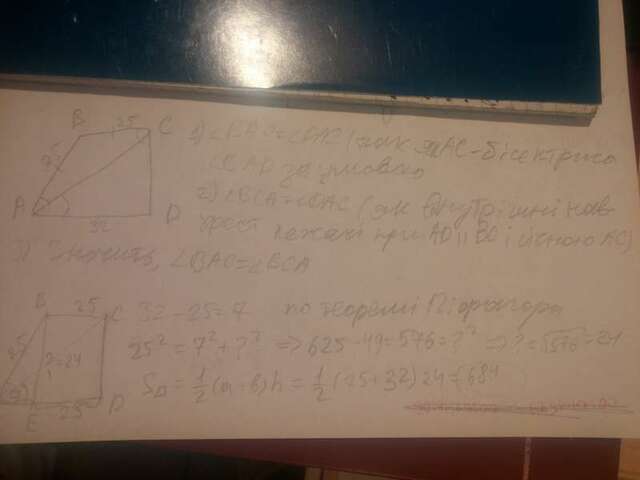 B 25 C
1) ∠BAC=∠DAC (так як AC-бісектриса
∠BAD за умовою
2) ∠BCA=∠DAC (як внутрішні нав
хрест лежачі при AD || BC і січною AC)
A 32 D
3) Значить, ∠BAC=∠BCA
B 25 C
32 - 25 = 7 по теоремі Піфагора
25² = 7² + ?² => 625 - 49 = 576 = ?² => ? = √576 = 24
25 ?=24
S = 1/2 (a+b)h = 1/2 (25+32) 24 = 684
E 25 D